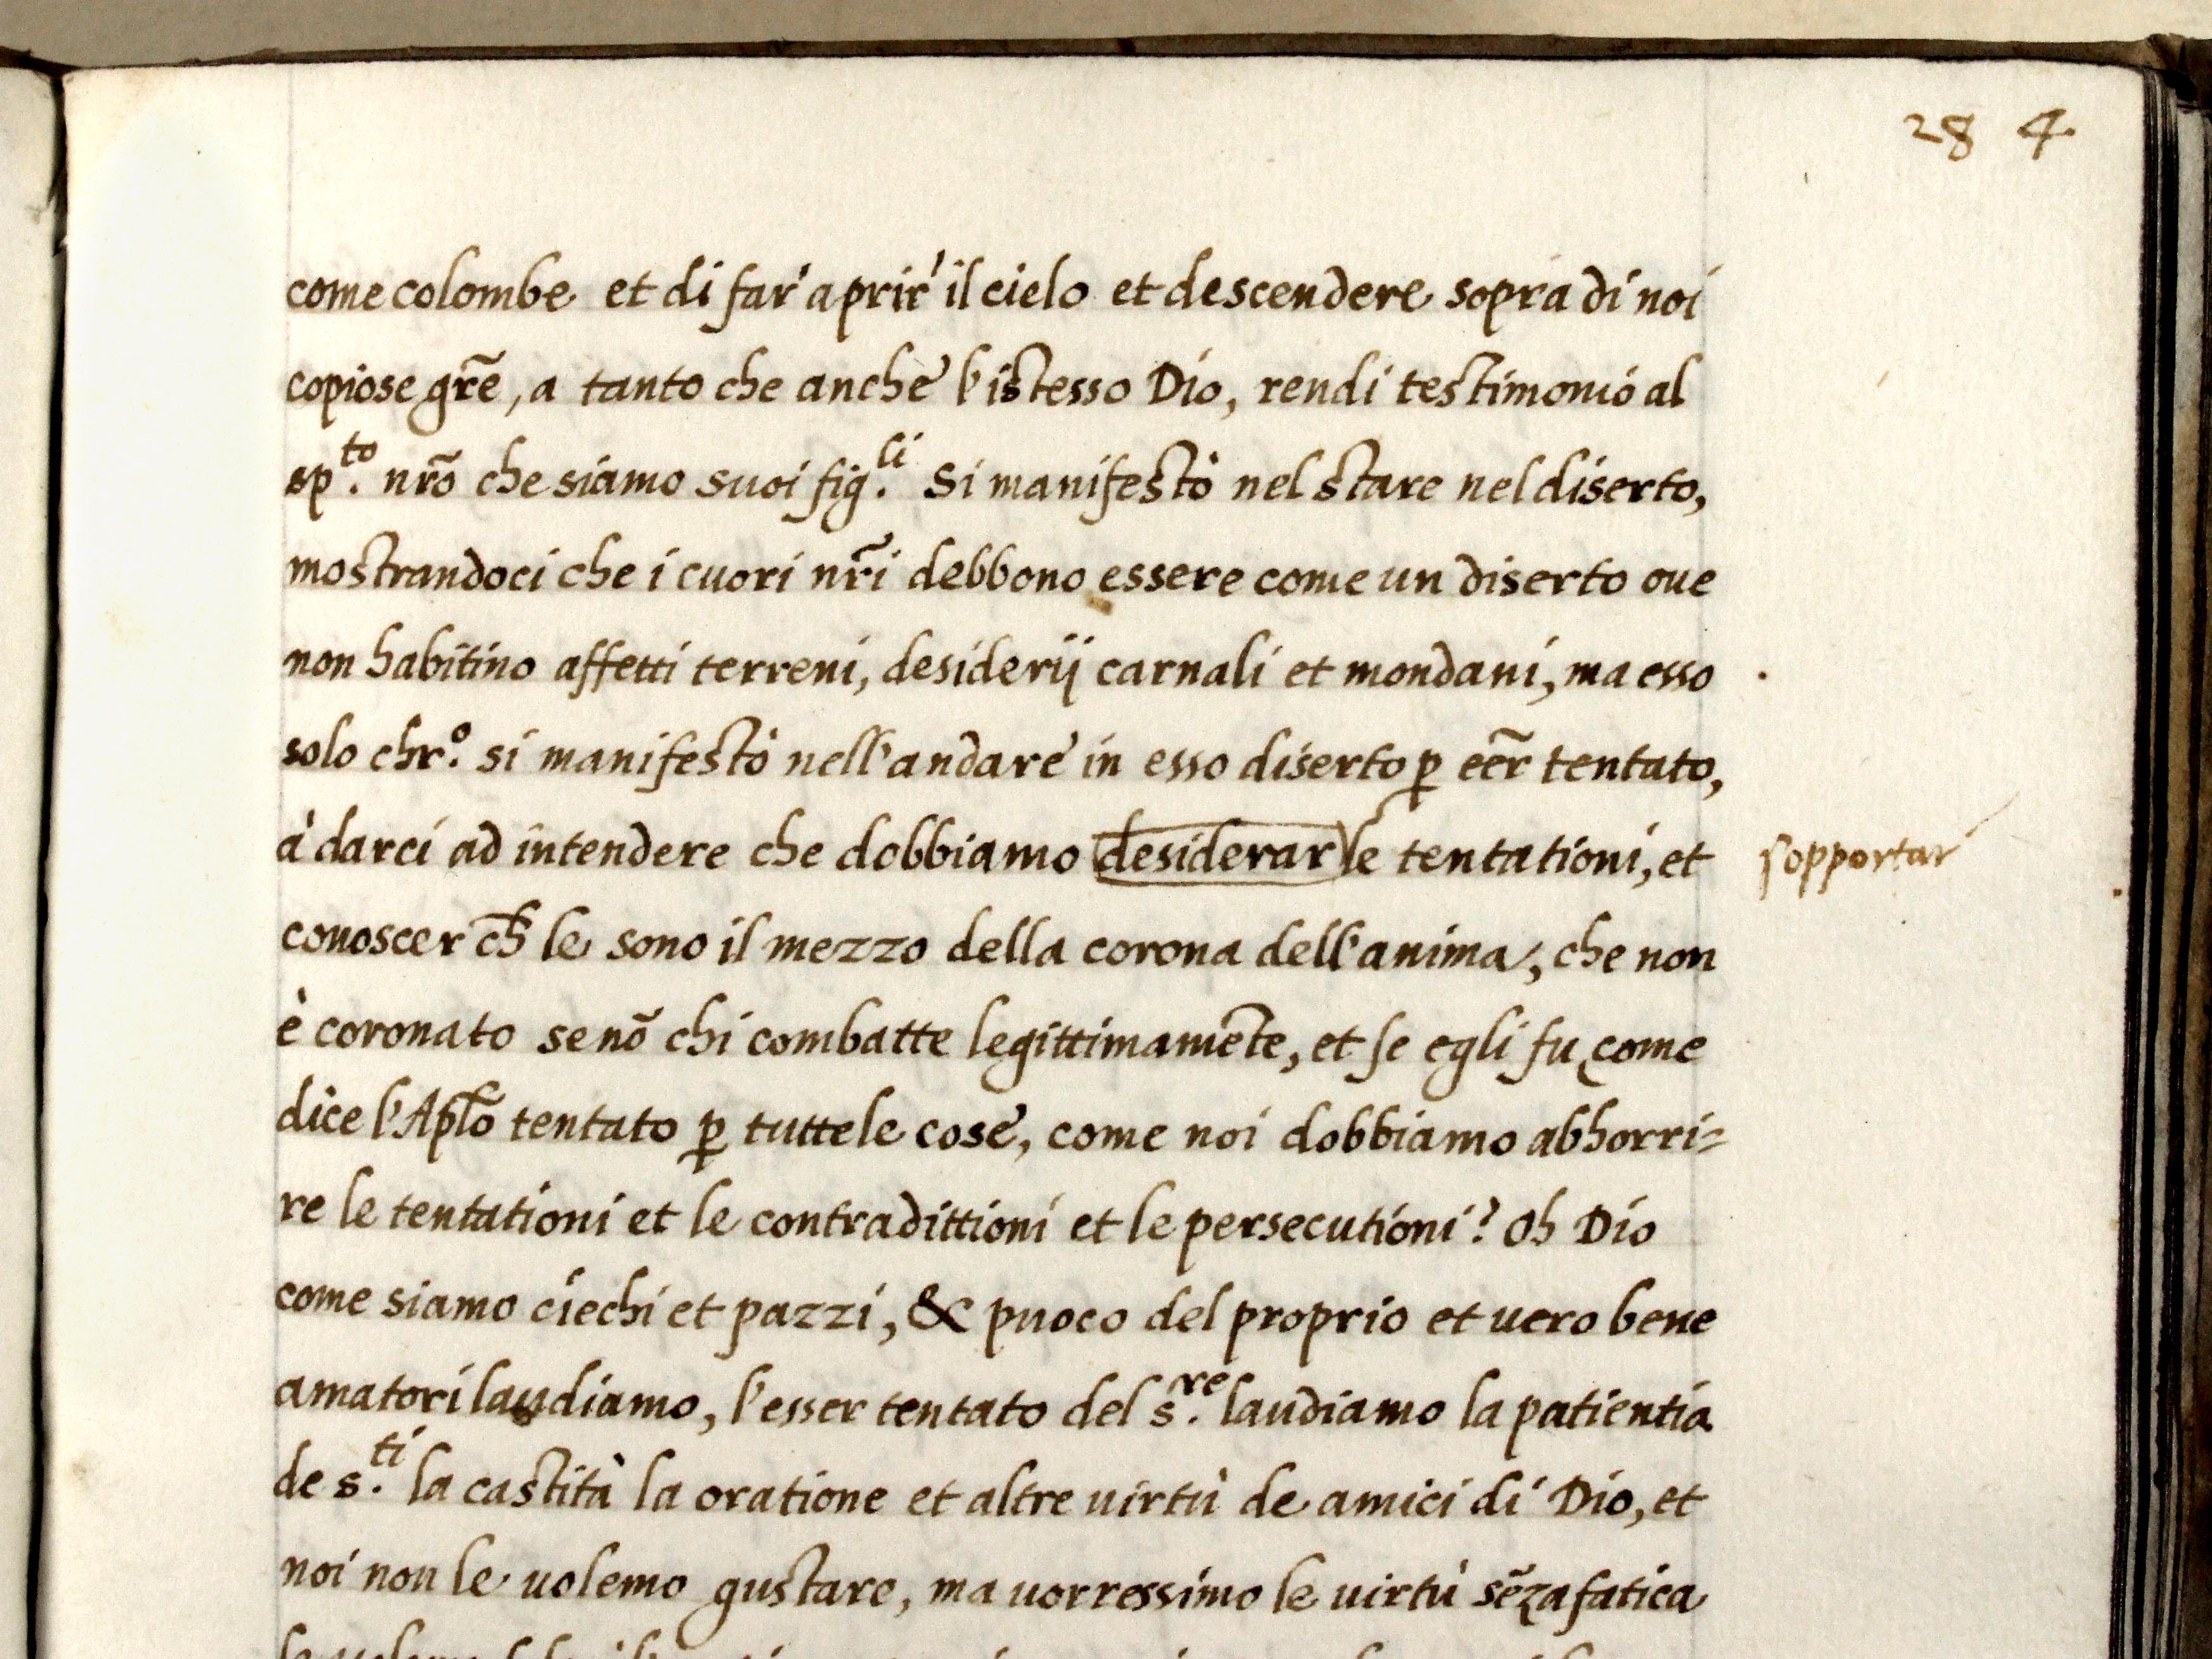 28 4.
come colombe et di far' aprir' il cielo et descendere sopra di noi
copiose gr̃e, a tanto che anche l'istesso Dio, rendi testimonio al
sp.to nr̃o che siamo suoi fig.li Si manifestò nel stare nel diserto,
mostrandoci che i cuori nr̃i debbono essere come un diserto oue
non habitino affetti terreni, desiderij carnali et mondani, ma esso
solo chr.o si manifestò nell'andare in esso diserto ꝑ eer̃ tentato,
à darci ad intendere che dobbiamo desiderar le tentationi, et
sopportar
conoscer ch̃ le sono il mezzo della corona dell'anima, che non
è coronato se nõ chi combatte legittimamẽte, et se egli fu come
dice l'Apl̃o tentato ꝑ tutte le cose, come noi dobbiamo abhorri=
re le tentationi et le contradittioni et le persecutioni? Oh Dio
come siamo ciechi et pazzi, & puoco del proprio et uero bene
amatori laudiamo, l'esser tentato del s.re laudiamo la patientia
de s.ti la castità la oratione et altre uirtù de amici di Dio, et
noi non le uolemo gustare, ma uorressimo le uirtù sẽza fatica